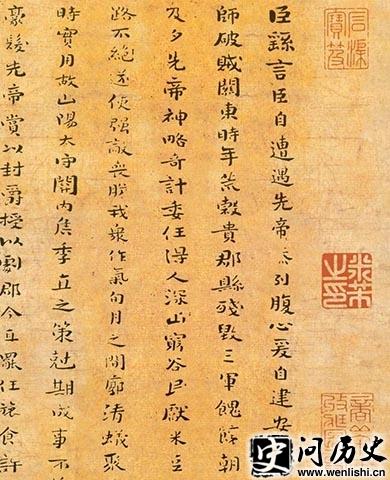 臣繇言臣自遭遇先帝忝列腹心爰自建安
師破賊關東時年荒穀貴郡縣殘毀三軍餽饟朝
及夕先帝神略奇計委任得人深山窮谷民獻米豆
路不絕遂使強敵喪膽我眾作氣旬月之間廓清蟻聚
時實用故山陽太守關內侯季直之策尅期成事不
豪髮先帝賞以封爵授以劇郡今直罷任旅食許
米芾之印
问历史
www.wenlishi.cn